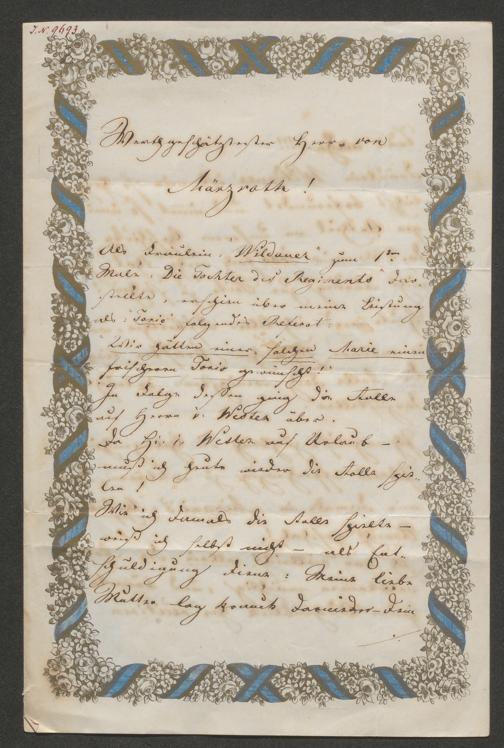 J. N. 9693
Werthgeschätztester Herr von
Märzroth!
Als Fräulein "Wildauer" zum 1ten
Male "Die Tochter des Regiments" dar-
stellte, erschien über meine Leistung
als "Tonio" folgendes Referat:
"Wir hätten einer solchen Marie einen
frischern Tonio gewünscht!"
In Folge dessen ging die Rolle
auf Herrn v. Westen über.
Da H: v: Westen auf Urlaub –
muß ich heute wieder die Rolle spie-
len!
Wie ich damals die Rolle spielte –
weiß ich selbst nicht – als Ent-
schuldigung diene: Meine liebe
Mutter lag krank darnieder – dem